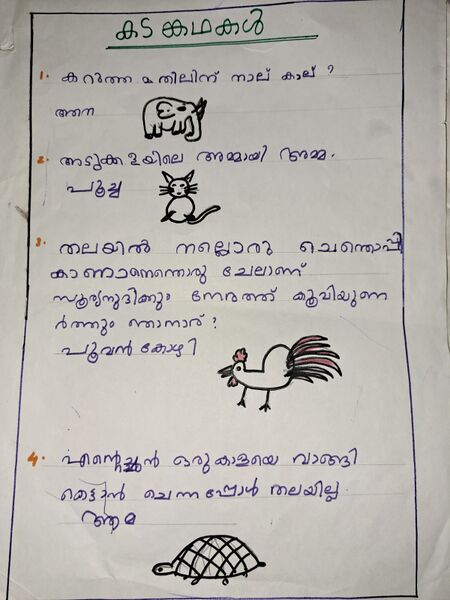 കടങ്കഥകൾ
1. കറുത്ത മതിലിന് നാല് കാല് ?
ആന
2. അടുക്കളയിലെ അമ്മായി അമ്മ.
പൂച്ച
3. തലയിൽ നല്ലൊരു ചെന്തൊപ്പി
കാണാനെന്നൊരു ചേലാണ്
സൂര്യനുദിക്കും നേരത്ത് കൂവിയുണ
ർത്തും ഞാനാര് ?
പൂവൻ കോഴി
4. എന്റെച്ഛൻ ഒരുകാളയെ വാങ്ങി
കെട്ടാൻ ചെന്നപ്പോൾ തലയില്ല
ആമ